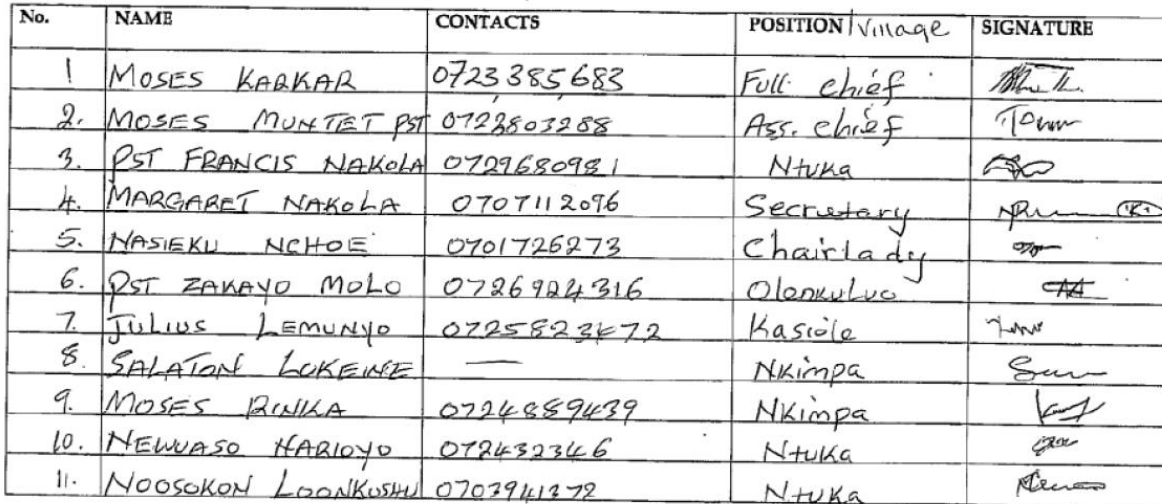 No. NAME CONTACTS POSITION/Village SIGNATURE
1 MOSES KARKAR 0723385683 Full chief
2. MOSES MUNTET PST 0722803288 Ass. chief
3. PST FRANCIS NAKOLA 0729680981 Ntuka
4. MARGARET NAKOLA 0707112096 Secretary
5. NASIEKU NCHOE 0701726273 Chairlady
6. PST ZAKAYO MOLO 0726924316 Olonkuluo
7. JULIUS LEMUNYO 0725823472 Kasiole
8. SALATON LOKEINE — Nkimpa
9. MOSES RINKA 0724889439 Nkimpa
10. NEWUASO NARIOYO 072432346 Ntuka
11. NOOSOKON LOONKUSHU 0703941272 Ntuka